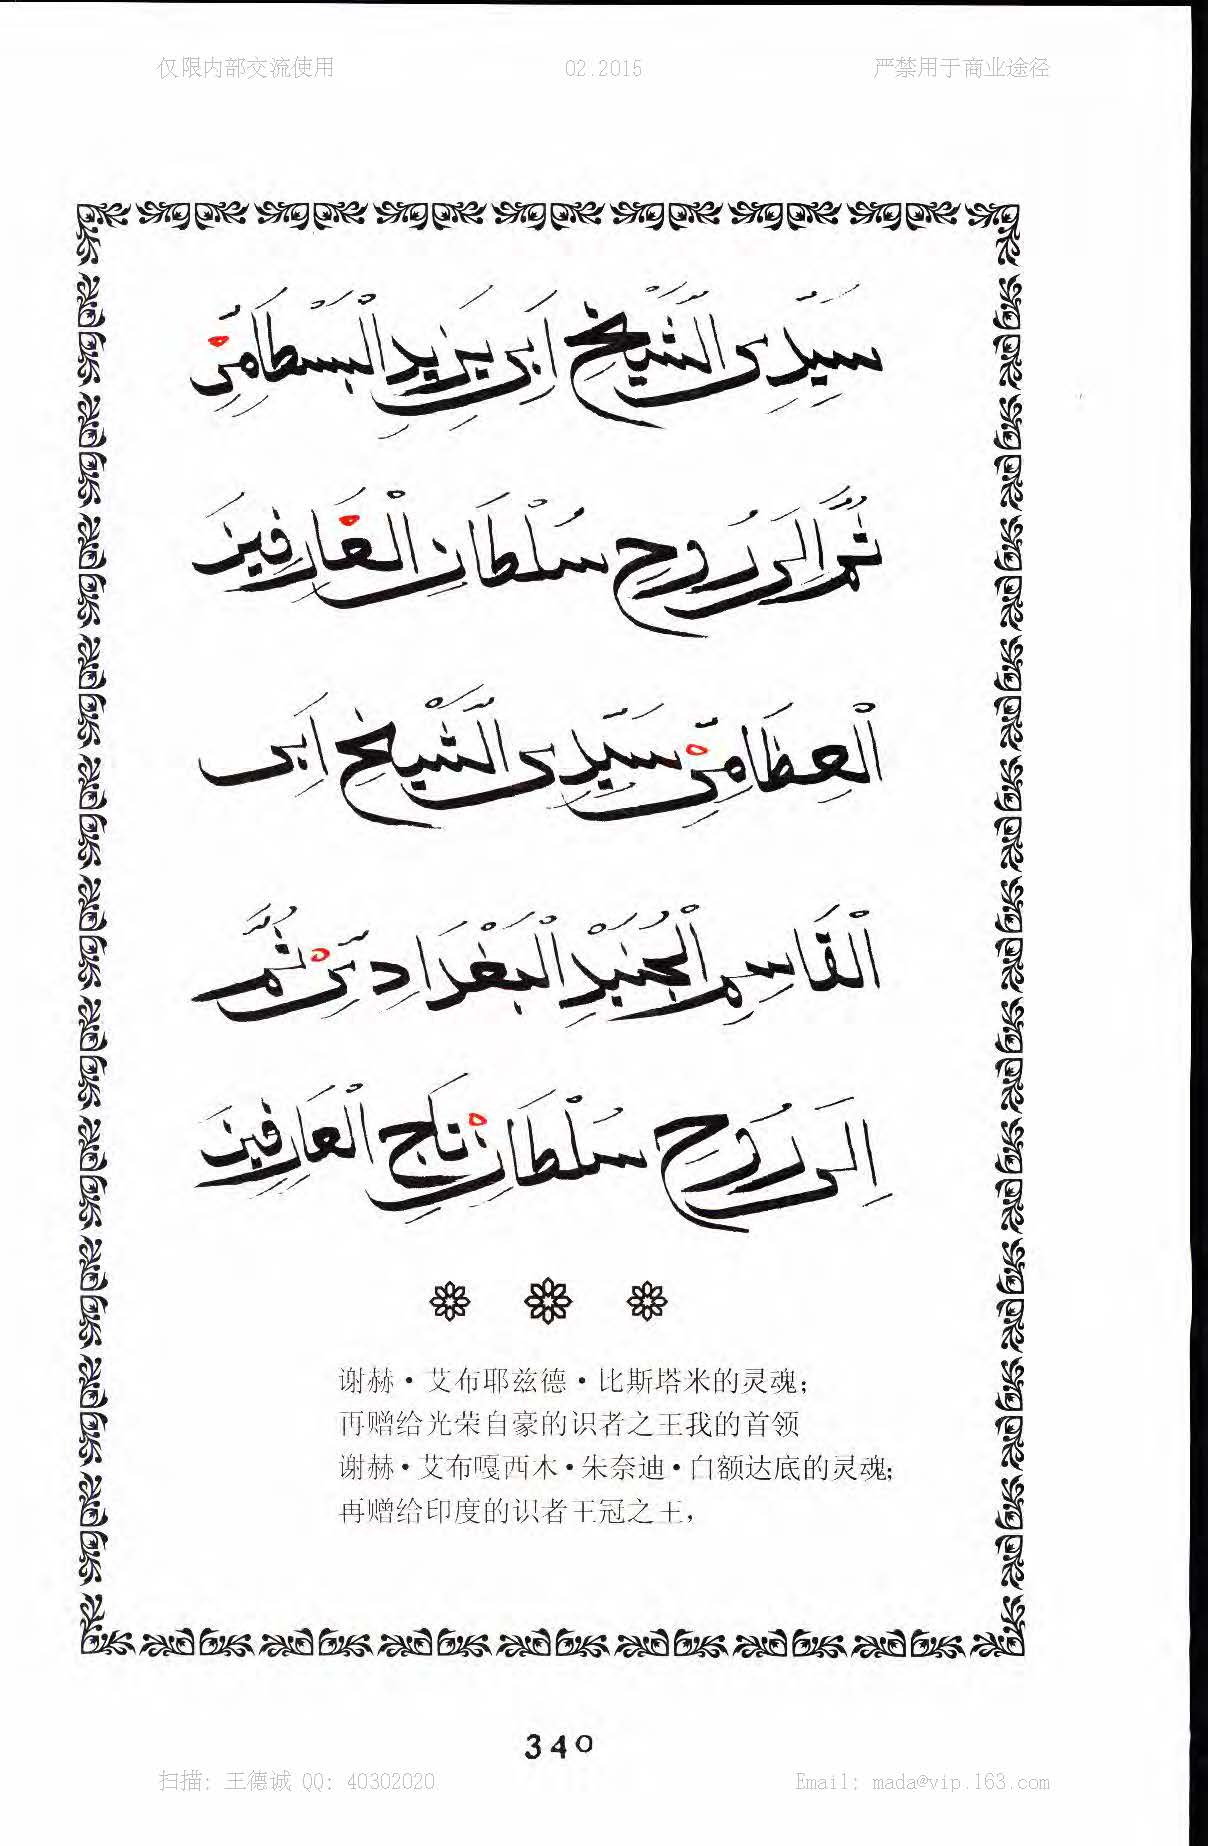 仅限内部交流使用 02.2015 严禁用于商业途径
سَيِّدِى الشَّيْخِ اَبِى يَزِيدِ الْبَسْطَامِىِّ
ثُمَّ اِلَى رُوحِ سُلْطَانِ الْعَارِفِينَ
الْعِظَامِىِّ سَيِّدِى الشَّيْخِ اَبِى
الْقَاسِمِ الْجُنَيْدِ الْبَغْدَادِىِّ ثُمَّ
اِلَى رُوحِ سُلْطَانِ تَاجِ الْعَارِفِينَ
谢赫·艾布耶兹德·比斯塔米的灵魂；
再赠给光荣自豪的识者之王我的首领
谢赫·艾布嘎西木·朱奈迪·白额达底的灵魂；
再赠给印度的识者王冠之王，
340
扫描: 王德诚 QQ: 40302020 Email: mada@vip.163.com